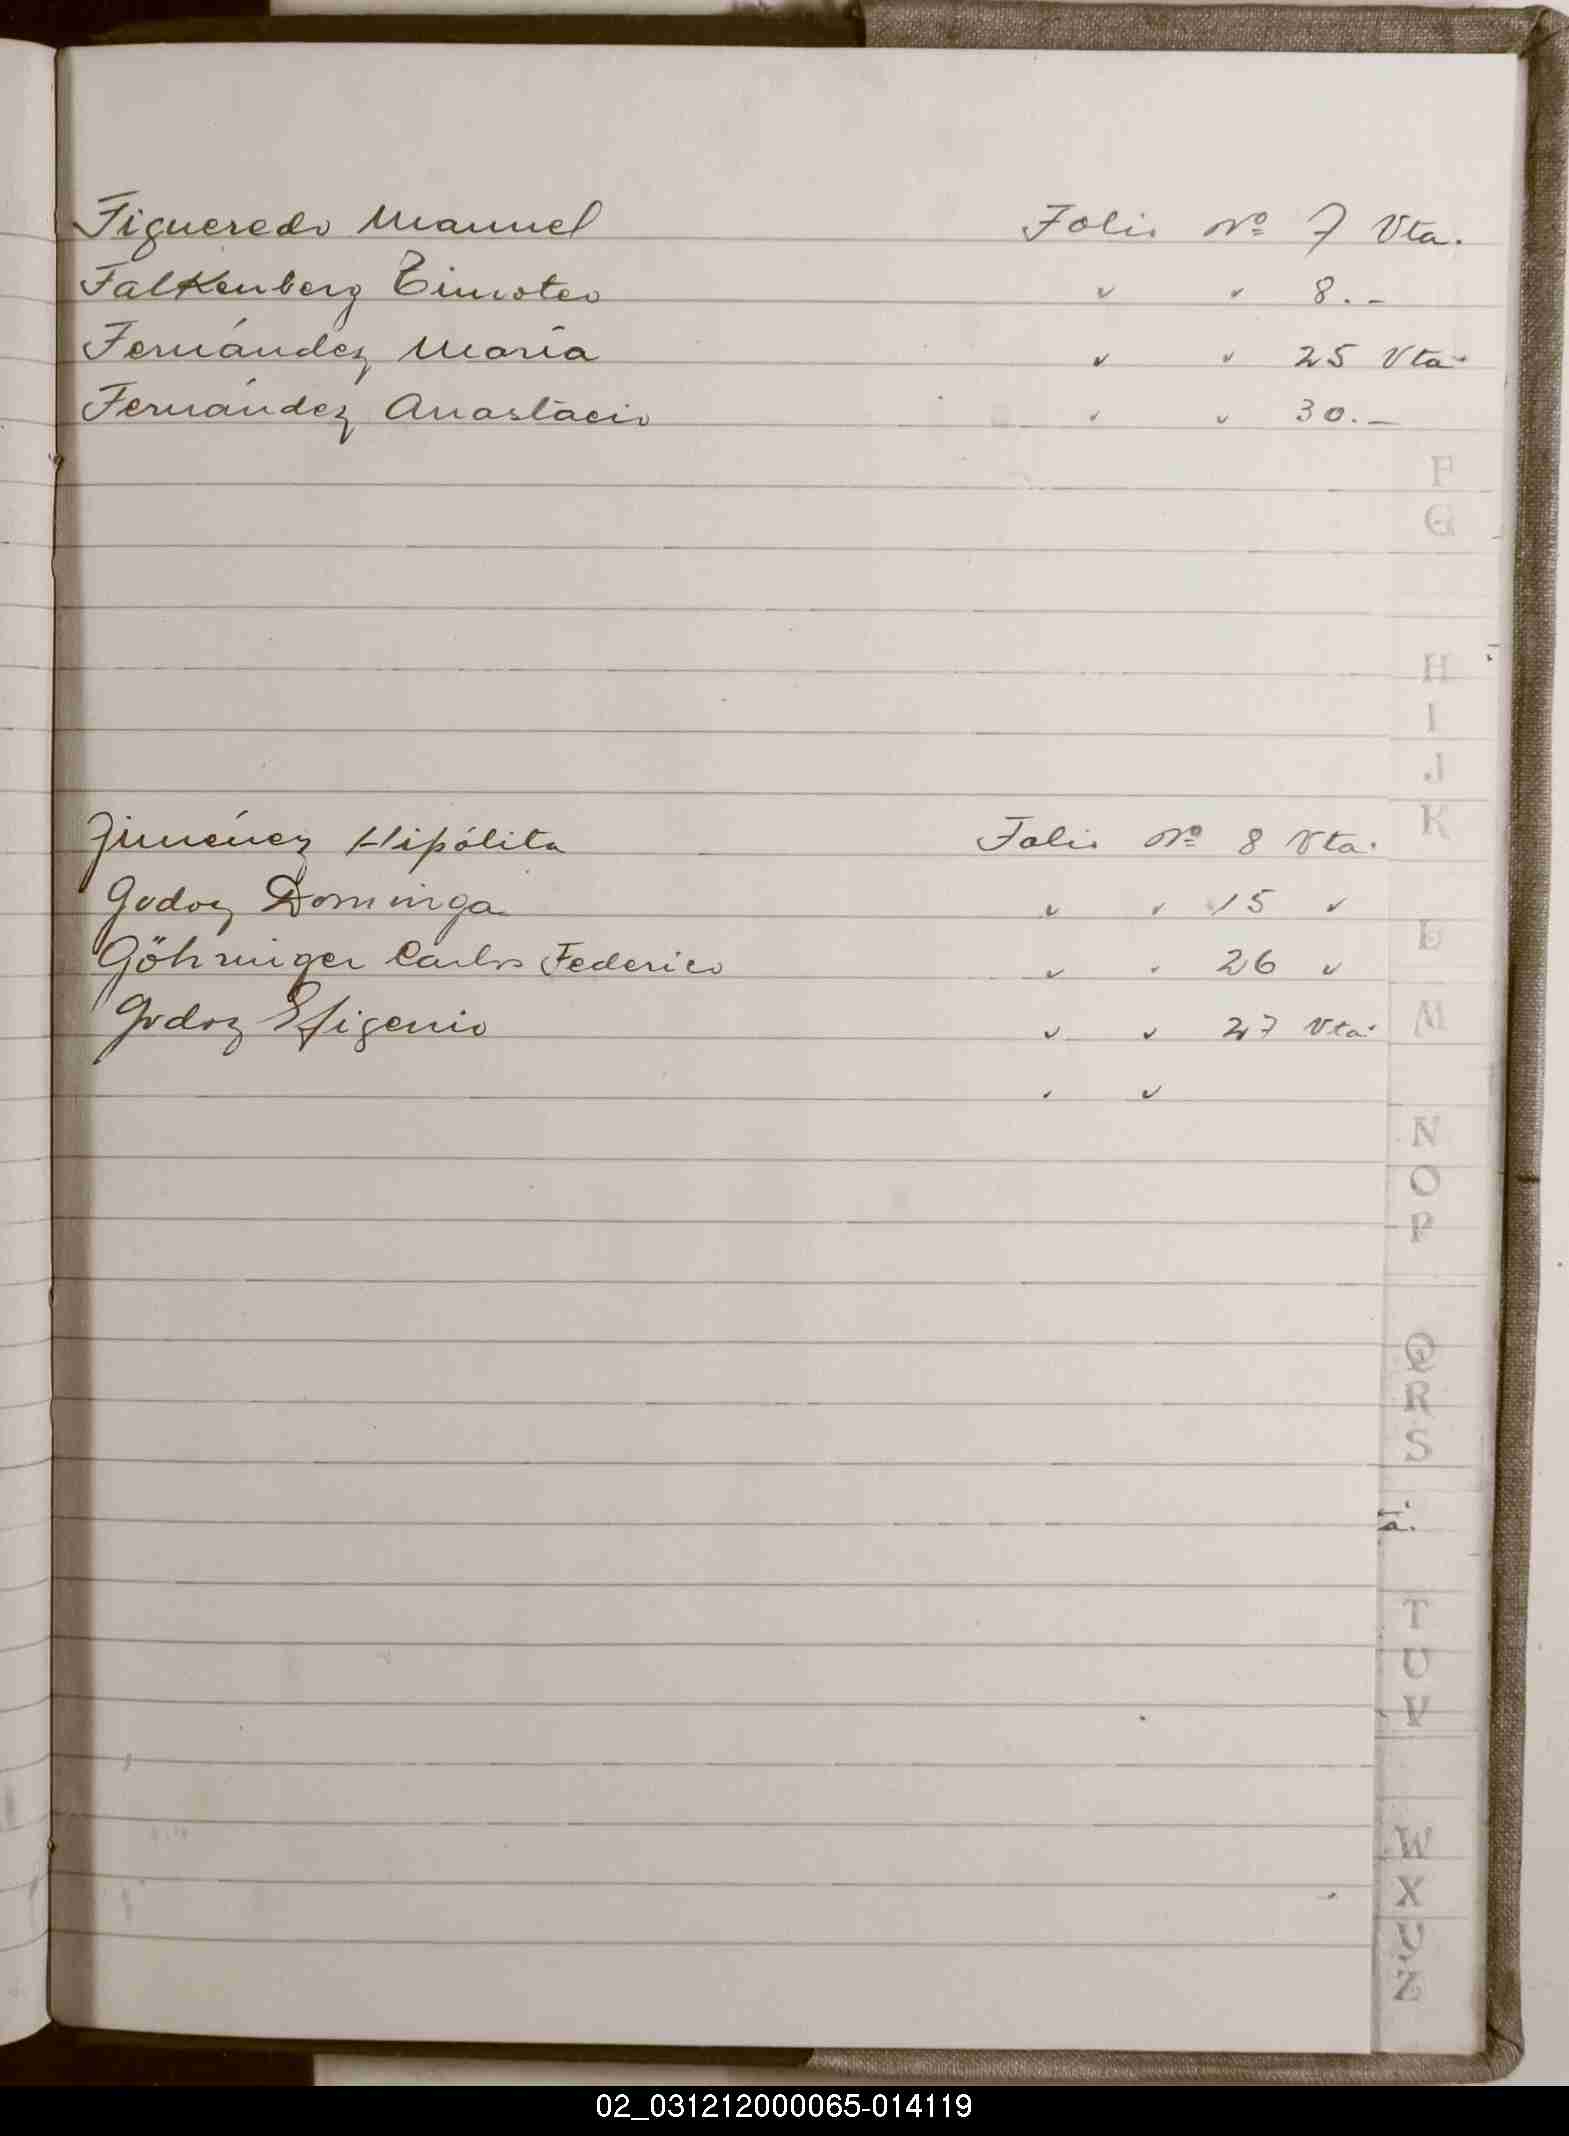 Figueredo Manuel Folio Nº 7 Vta.
Falkenberg Timoteo " " 8.-
Fernández María " " 25 Vta.
Fernández Anastacio " " 30.-
F
G
H
I
J
K
Jiménez Hipólita Folio Nº 8 Vta.
Godoy Dominga " " 15 "
Göhringer Carlos Federico " " 26 "
Godoy Efigenio " " 27 Vta.
" "
L
M
N
O
P
Q
R
S
ta.
T
U
V
W
X
Y
Z
02_031212000065-014119